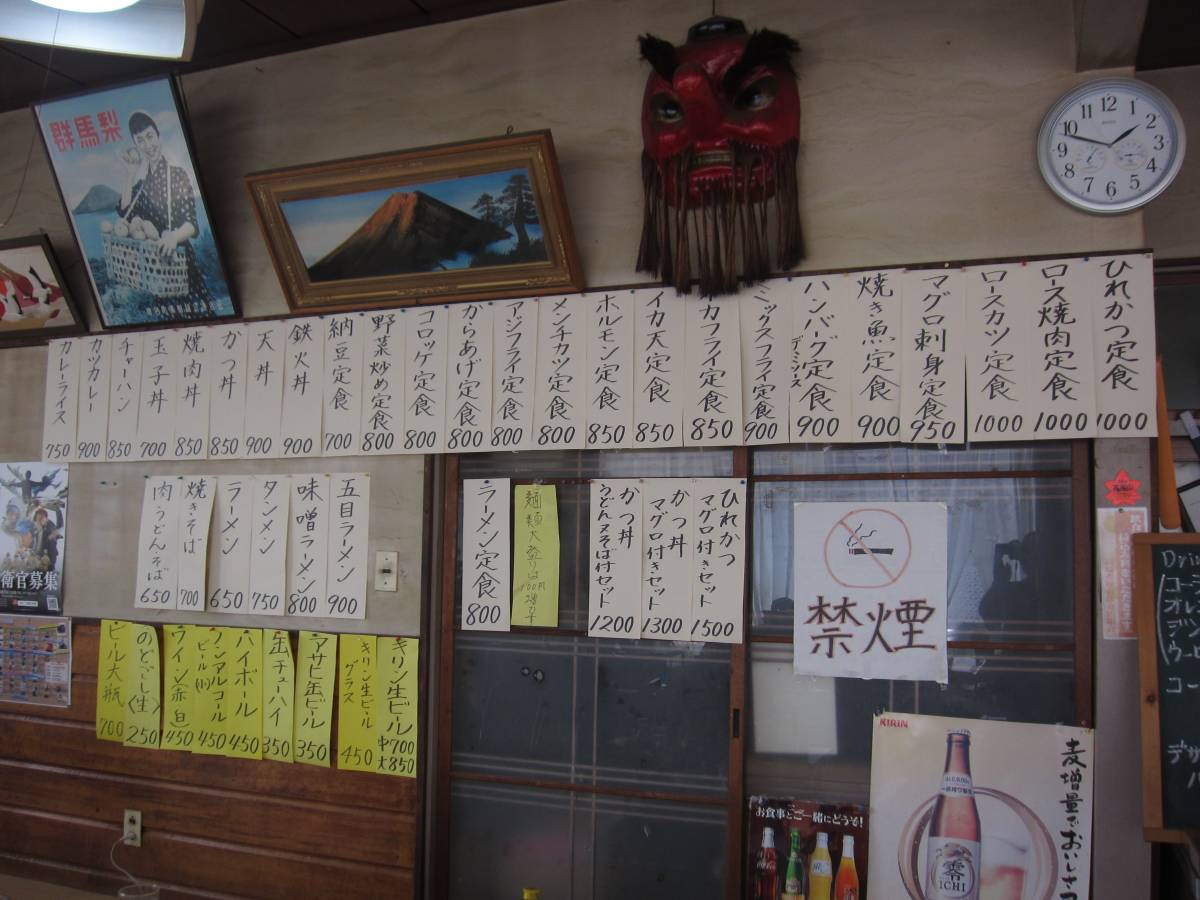 群馬梨
ひれかつ定食 1000
ロース焼肉定食 1000
ロースカツ定食 1000
マグロ刺身定食 950
焼き魚定食 900
ハンバーグ定食 デミソース 900
ミックスフライ定食 900
カフライ定食 850
イカ天定食 850
ホルモン定食 850
メンチカツ定食 800
アジフライ定食 800
からあげ定食 800
コロッケ定食 800
野菜炒め定食 800
納豆定食 700
鉄火丼 900
天丼 900
かつ丼 850
焼肉丼 850
玉子丼 700
チャーハン 850
カツカレー 900
カレーライス 750
五目ラーメン 900
味噌ラーメン 800
タンメン 750
ラーメン 650
焼きそば 700
肉うどんそば 650
ひれかつ マグロ付きセット 1500
かつ丼 マグロ付きセット 1300
かつ丼 うどん又そば付セット 1200
麺類大盛りは100円増し
ラーメン定食 800
キリン生ビール 中700 大850
キリン生ビール グラス 450
アサヒ缶ビール 350
缶チューハイ 350
ハイボール 450
ノンアルコールビール(小) 450
ワイン(赤・白) 450
のどごし〈生〉 250
ビール大瓶 700
禁煙
衛官募集
KIRIN
麦増量でおいしさ
零ICHI
お食事とご一緒にどうぞ!
Drin
コー
オレ
ジン
ウーロ
コー
デザ
12 1 2 3 4 5 6 7 8 9 10 11